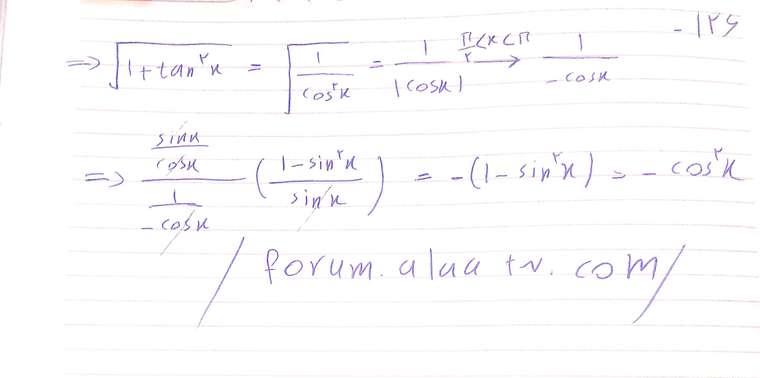 -۱۲۶
=> √(1+tan^۲x) = √(1/cos^۲x) = 1/|cosx| π/۲<x<π → 1/-cosx
=> ((sinx/cosx)/(1/-cosx)) ((1-sin^۲x)/sinx) = -(1-sin^۲x) = -cos^۲x
/ forum.alaa tv.com/